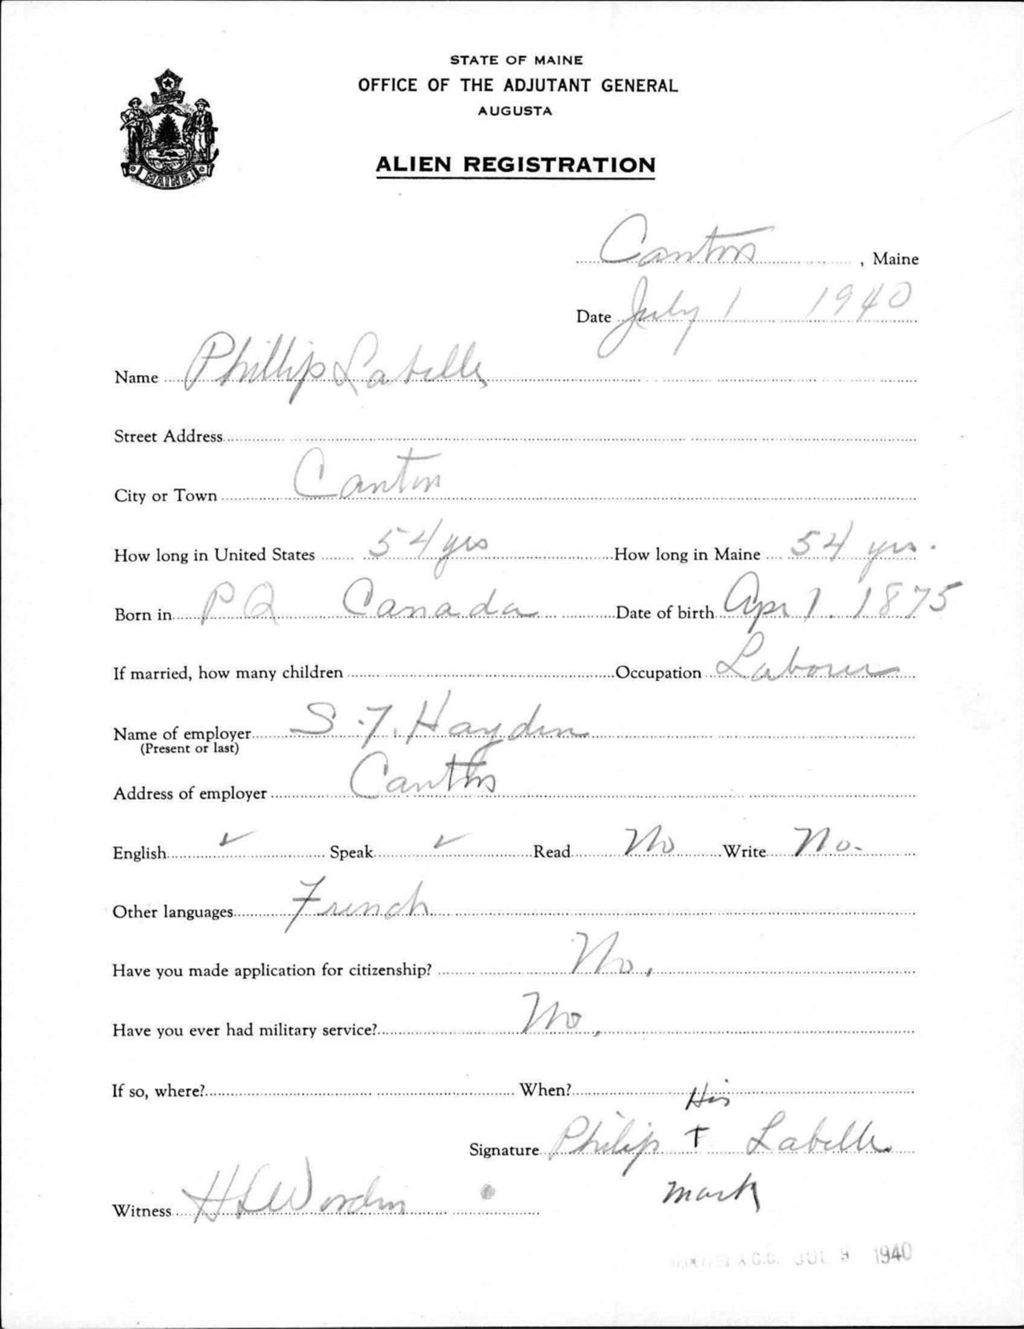 STATE OF MAINE
OFFICE OF THE ADJUTANT GENERAL
AUGUSTA
ALIEN REGISTRATION
MAINE
Canton, Maine
Date July 1 1940
Name Phillip Labelle
Street Address
City or Town Canton
How long in United States 54 yrs How long in Maine 54 yrs.
Born in P Q Canada Date of birth Apr 1. 1875
If married, how many children Occupation Laborer
Name of employer S. F. Hayden
(Present or last)
Address of employer Canton
English ✓ Speak ✓ Read No Write No.
Other languages French
Have you made application for citizenship? No.
Have you ever had military service? No.
If so, where? When?
His
Signature Philip T Labelle
mark
Witness H L Worden
A.G.O. JUL 9 1940